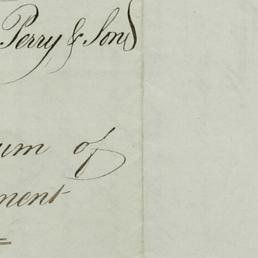 Perry & Sons
um of
ment